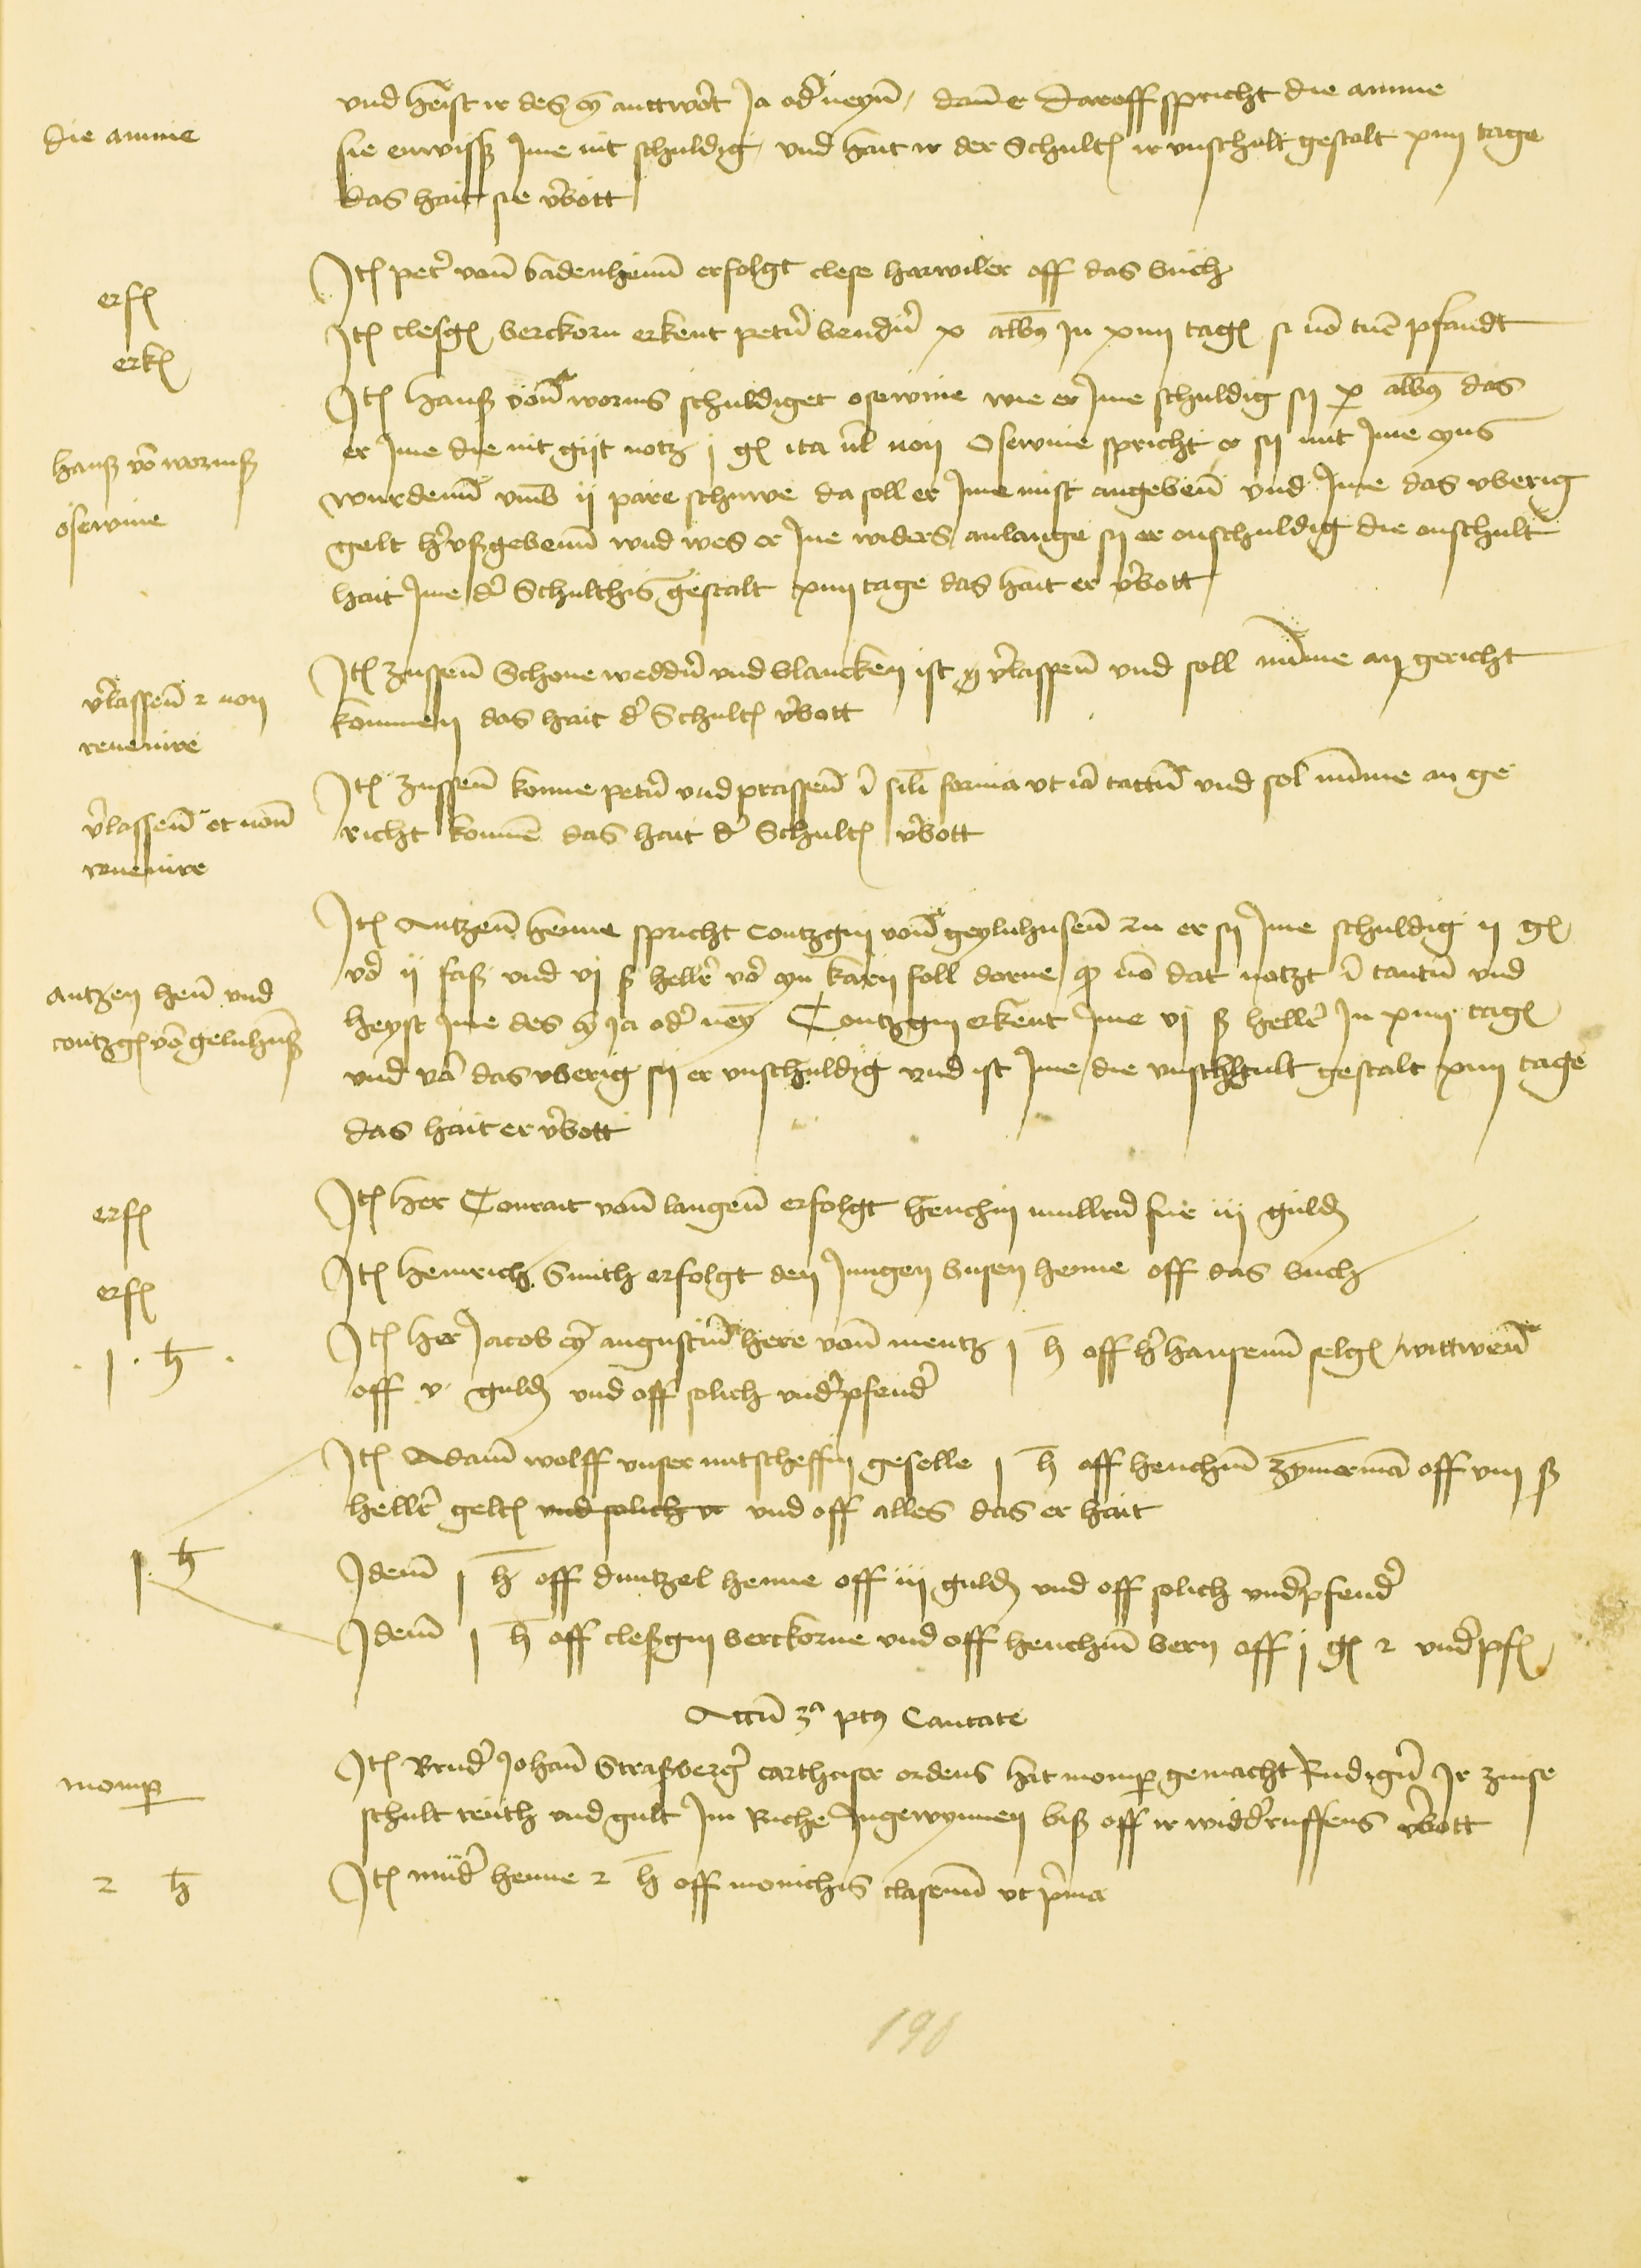 und heist ir des ey anttwort Ja od neyn, dann daroff spricht die amme
die amme
sie enwisß Ime nit schuldig und hait ir der Schult ir unschult gestalt xiiij tage
das hait sie vbott
erf
It pet vonn badenheim erfolgt clese harwiler off das buch
erk
It clesg berckorn erkent petn bend x alb in xiiij tag si no tuc pfandt
hanß vo wormß
osewine
It hanß vonn worms schuldiget osewine wie er Ime schuldig sij x alb das
er Ime die nit gijt notz j g ita vl non Osewine spricht er sij mit Ime eyns
wurdenn umb ij pare schuwe da soll er Ime mist angeben und Ime das uberig
gelt hußgebenn und wes er Ine widers anlange sij er onschuldig die onschult
hait Ime d Schulthis gestalt xiiij tage das hait er vbott
vlassen 2 non
revenire
It zussen Schone weddn und blancken ist vlassen und soll nume an gericht
kommen das hait d Schult vbott
vlassen et non
revenire
It zussen konne petn und prassen i sili forma ut ia tactu und sol nume an ge
richt komme das hait d Schult vbott
antzen hen und
contzg vo gelnhuß
It Antzen henne spricht Contzgin vonn geylnhusen zu er sij Ime schuldig ij g
vo ij faß und vj ß hell vo eyn karn foll dorne q no dat notzt i tantu und
heyst Ime des ey ja od ney Contzgin erkent Ime vj ß hell in xiiij tag
und va das uberig sij er unschuldig und ist Ime die unschult gestalt xiiij tage
das hait er vbott
erf
It her Conrait vonn langen erfolgt henchin mulln fur iij guld
erf
It heinrich Smith erfolgt den Jungen busen henne off das buch
j h
It her Jacob ey augustin here vonn mentz j h off h hansenn selg wittwen
off v guld und off solich undpfend
j h
It Adam wolff unser mitscheffin geselle j h off henchin zymerma off viij ß
hell gelt und solich u und off alles das er hait
Idem j h off duntzel henne off iij guld und off solich undpfend
Idem j h off cleßgin berckorne und off henchin bern off j g 2 undpf
Actu 3a pt Cantate
momp
It Brud Johan Straßberg carthuser ordens hat momp gemacht Rudign Ir zinse
schult renth und gult Im Riche Ingewynnen biß off ir widdruffens vbott
2 h
It mud henne 2 h off monichis clasenn ut pma
198